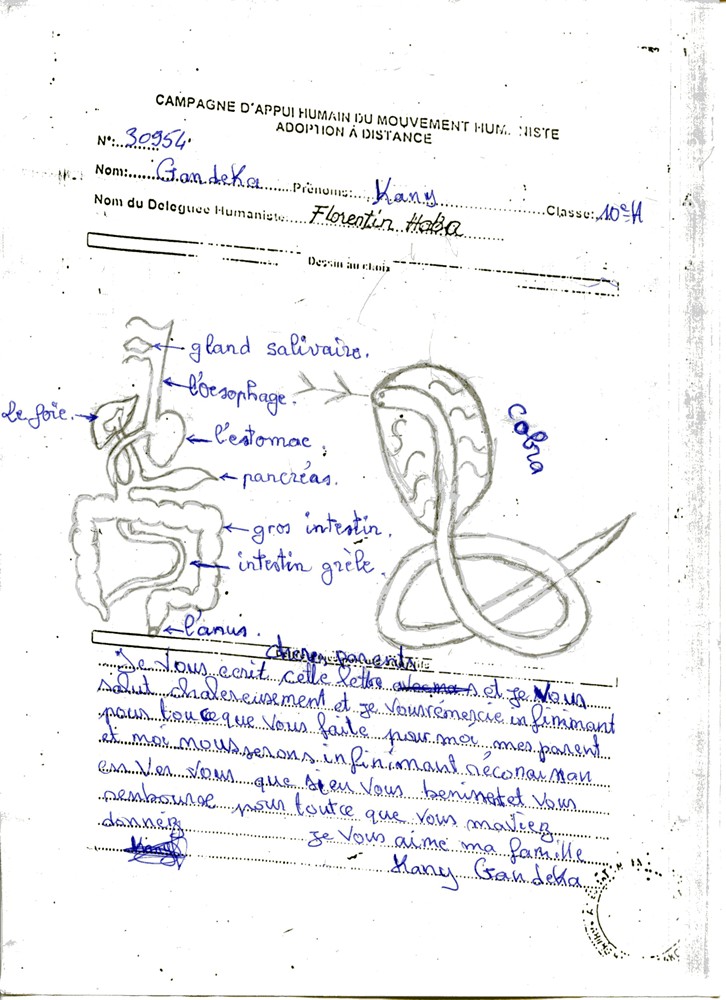 CAMPAGNE D'APPUI HUMAIN DU MOUVEMENT HUM. NISTE
ADOPTION À DISTANCE
N°:...30954
Nom:...GandeKa...Prénoms:...Kany...Classe:.10e A
Nom du Deleguee Humaniste...Florentin Haba
Dessin au choix
gland salivaire.
l'oesophage.
Le foie.
l'estomac.
pancréas.
gros intestin.
intestin grêle.
l'anus.
Cobra
chere parents
Je vous ecrit cette lettre et je vous
salut chaleseusement et je vous rémercie infinimant
pour touce que vous faite pour moi mes parent
et moi nous serons infinimant réconaissan
en ver vous que dieu vous benimet et vous
rembourse pour toutce que vous maviez
donnéz
Je vous aime ma famille
Kany GandeKa